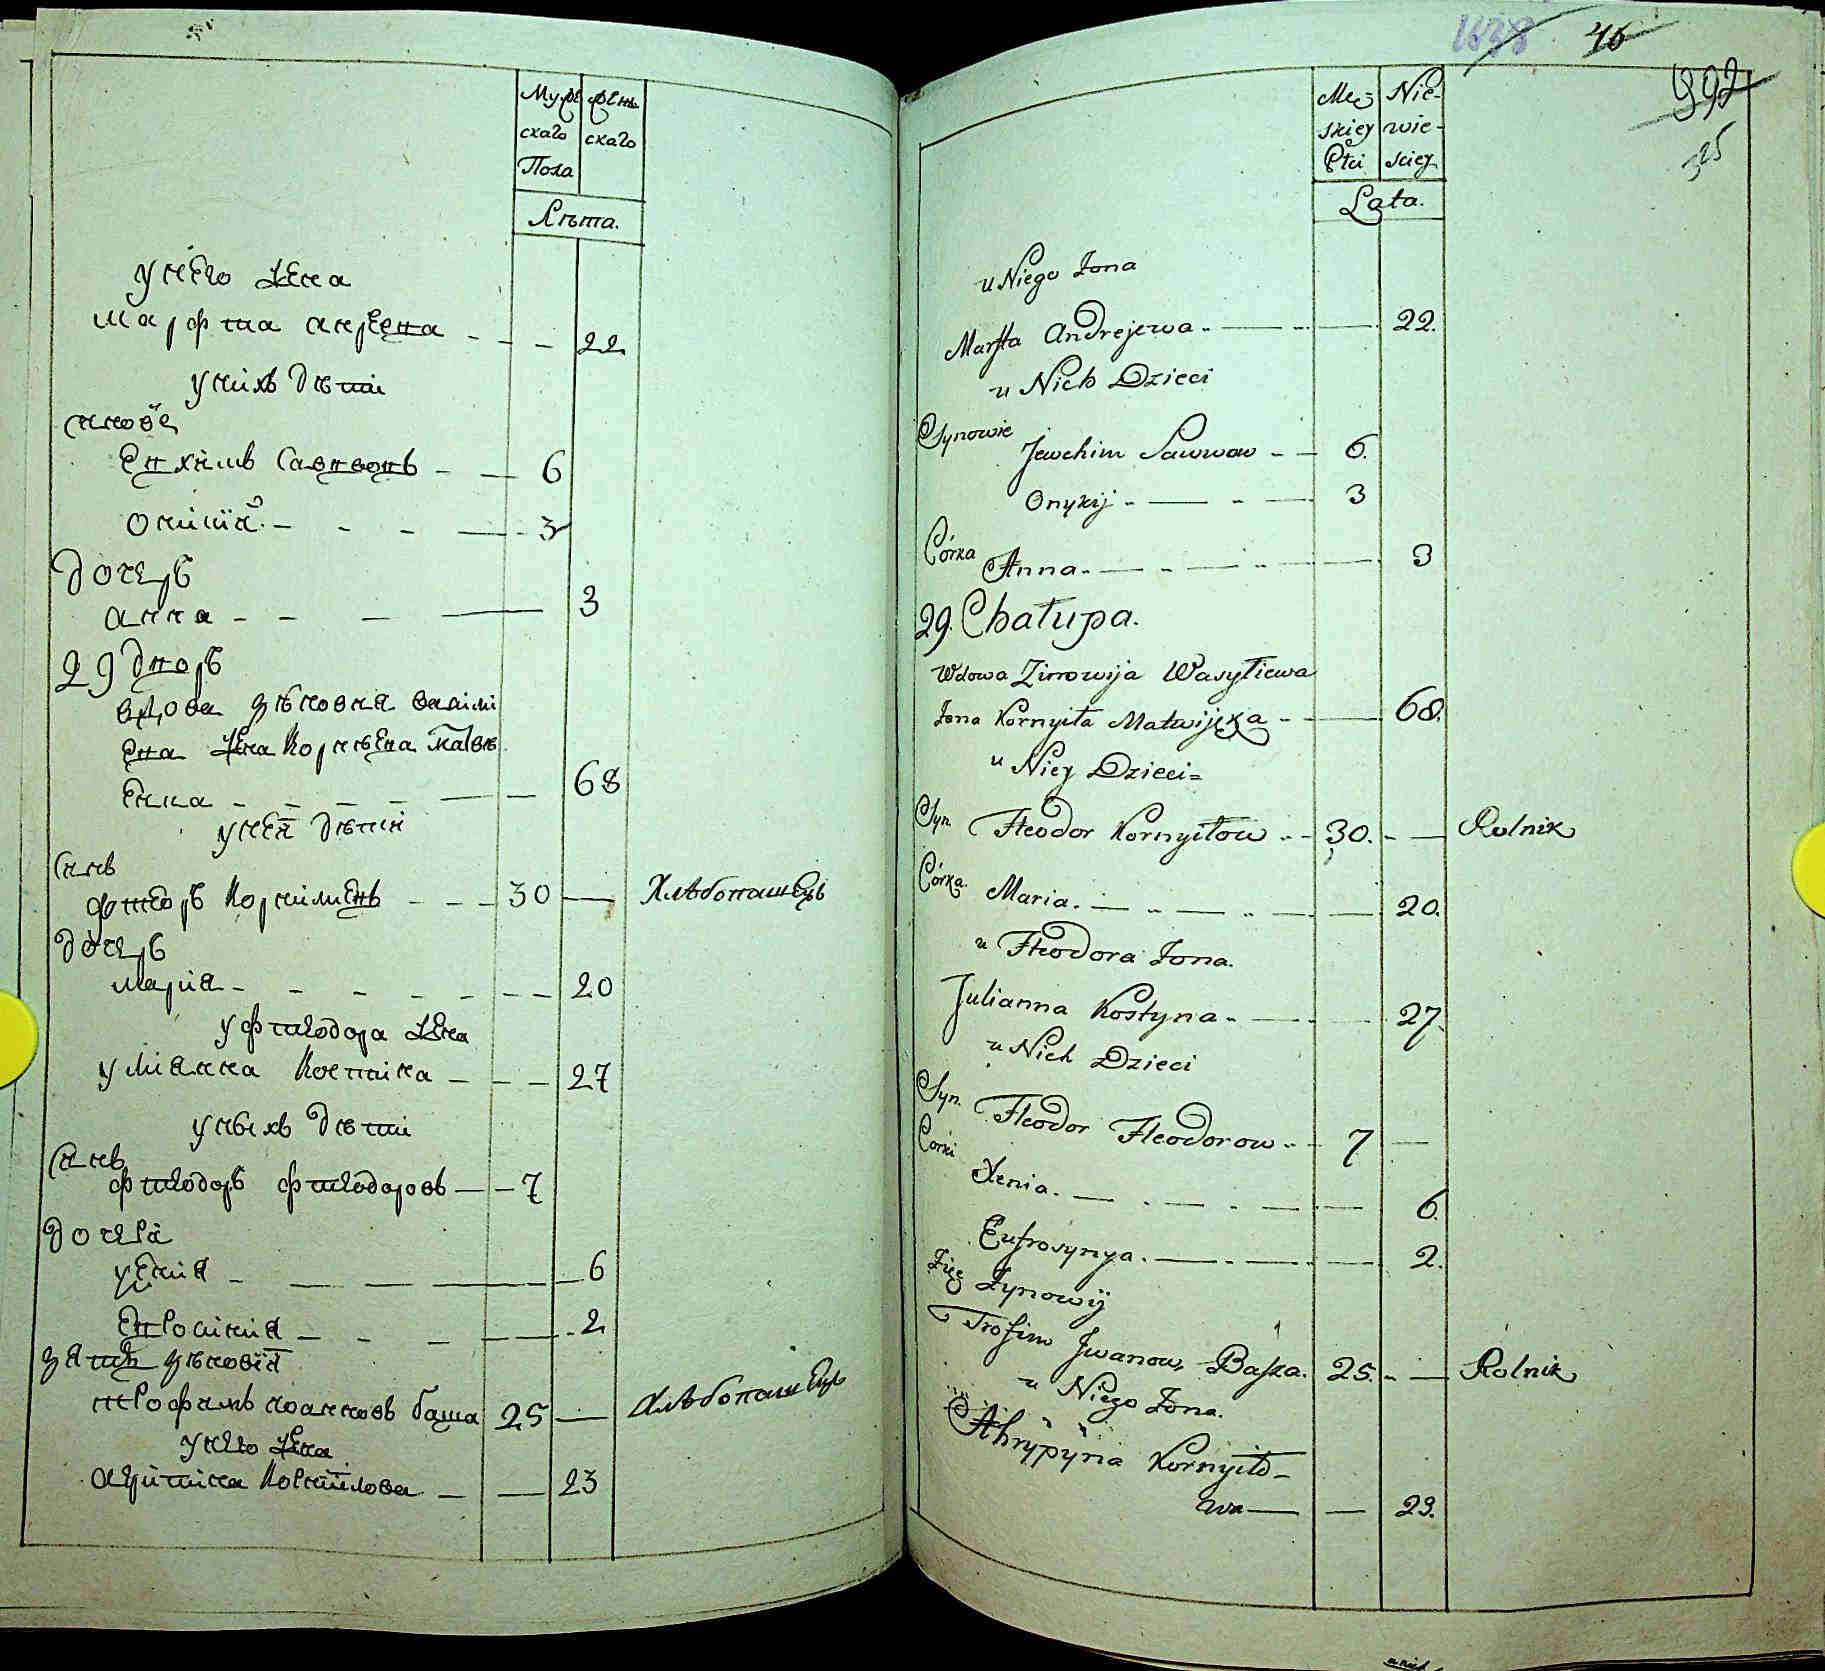 Муже женъ
скаго скаго
Пола
Лѣта.
у него жена
марфта андреева - - - 22
у нихъ дѣти
сынове
Евхимъ Саввовъ - - 6
Оникій - - - - 3
дочерь
анна - - - — 3
29 дворъ
вдова зѣновия васили
ева жена Корнѣена матвѣ
енка - - - - — - 68
у неи дѣти
сынъ
фтеоръ Корниловъ - - - 30 — Хлѣбопашецъ
дочерь
мария - - - - - - - 20
у фтеодора жена
улиянна Костина - - - 27
у ныхъ дѣти
сынъ
фтеодоръ фтеодоровъ - - 7
дочери
- — — — 6
Евросиния - - - — - 2
зять зѣновия
трофимъ иоанновъ баша 25 — Хлѣбопашецъ
у него жена
Корнилова - — 23
1638 46
992
325
Męz- Nie-
skiey wie-
Płci sciey
Lata.
u Niego Żona
Marfta Andrejewa - — — 22.
u Nich Dzieci
Synowie
Jewchim Sawwow - - 6.
Onykij - — - — 3
Córka
Anna. - — - — - — 3
29. Chałupa.
Wdowa Zinowija Wasyliewa
Żona Kornyiła Matwijęka - — 68.
u Niey Dzieci =
Syn. Fteodor Kornyiłow - - 30. - — Rolnik
Córka. Maria. — - — - — — 20.
u Fteodora Żona.
Julianna Kostyna - — — 27.
u Nich Dzieci
Syn. Fteodor Fteodorow - - 7 —
Corki
Xenia. — - — - — — 6.
Eufrosynya. — - — - — 2.
Zięc Zynowij
Trofim Jwanow Baszka. 25. - — Rolnik
u Niego Żona.
Ahrypyna Kornyiło-
wa — — 23.